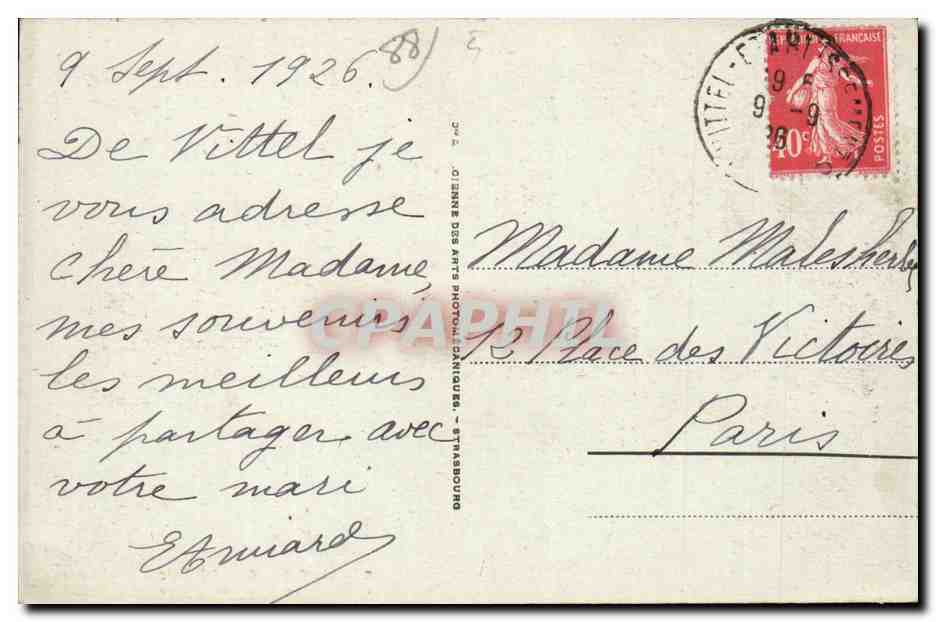 9 Sept. 1926.
88)
De Vittel je
vous adresse
chère Madame,
mes souvenirs
les meilleurs
à partager avec
votre mari
GIENNE DES ARTS PHOTOMÉCANIQUES. - STRASBOURG
FRANÇAISE
40c
POSTES
VITTEL
9 -9
26
Madame Malesherbes
12 Place des Victoires
Paris
CPAPHIL